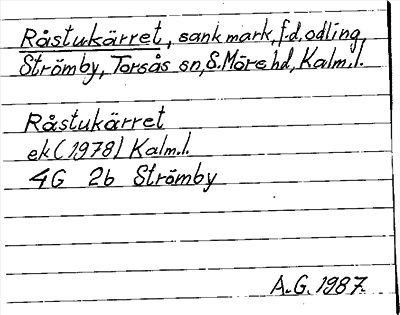 Råstukärret, sank mark, f.d. odling,
Strömby, Torsås sn, S. Möre hd, Kalm. l.
Råstukärret
ek (1978) Kalm. l.
4G 2b Strömby
A.G. 1987.